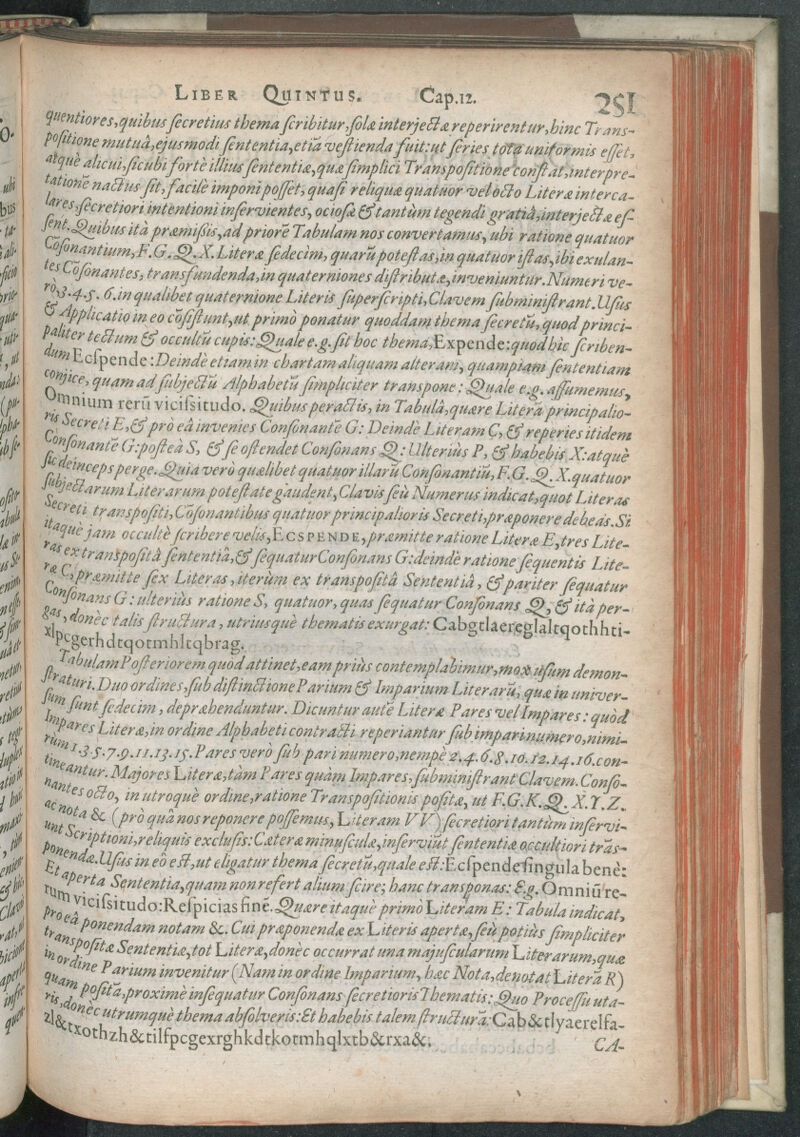 LIBER QUINTUS. Cap.12. 251
quentiores, quibus secretius thema scribitur, solæ interjectæ reperirentur, hinc Trans-
positione mutuâ, ejusmodi sententia, etiā vestienda fuit: ut series tota uniformis esset,
atquè alicui, sicubi fortè illius sententiæ, quæ simplici Transpositione constat, interpre-
tatione nactus sit, facilè imponi posset, quasi reliquæ quatuor vel octo Literæ interca-
lares, secretiori intentioni inservientes, ociosæ & tantùm tegendi gratiâ, interjectæ es-
sent. Quibus ità præmissis, ad priorē Tabulam nos convertamus, ubi ratione quatuor
Cōsonantium, F.G.Q.X. Literæ sedecim, quarū potestas, in quatuor istas, ibi exulan-
tes Cōsonantes, transfundenda, in quaterniones distributæ, inveniuntur. Numeri ve-
rò, 3.4.5. 6. in qualibet quaternione Literis superscripti, Clavem subministrant. Usus
& Applicatio in eo cōsistunt, ut primò ponatur quoddam thema secretū, quod princi-
paliter tectum & occultū cupis: Quale e.g. sit hoc thema, Expende: quod hîc scriben-
dum Ecspende: Deindè etiam in chartam aliquam alteram, quampiam sententiam
conjice, quam ad subjectū Alphabetū simpliciter transpone: Quale e.g. assumemus,
Omnium rerū vicissitudo. Quibus peractis, in Tabulâ, quære Literā principalio-
ris Secreti E, & prò eâ invenies Consonantē G: Deindè Literam C, & reperies itidem
Consonantē G: posteà S, & se ostendet Consonans Q: Ulteriùs P, & habebis X: atquè
sic deinceps perge. Quia verò quælibet quatuor illarū Consonantiū, F.G.Q.X. quatuor
subjectarum Literarum potestate gaudent, Clavis seù Numerus indicat, quot Literas
Secreti transpositi, Cōsonantibus quatuor principalioris Secreti, præponere debeas. Si
itaquè jam occultè scribere velis, ECSPENDE, præmitte ratione Literæ E, tres Lite-
ras ex transpositâ sententiâ, & sequatur Consonans G: deindè ratione sequentis Lite-
ræ C, præmitte sex Literas, iterùm ex transpositâ Sententiâ, & pariter sequatur
Consonans G: ulteriùs ratione S, quatuor, quas sequatur Consonans Q, & ità per-
gas, donèc talis structura, utriusquè thematis exurgat: Cabgtlaereglaltqothhti-
xlpcgerhdtqotmhltqbrag.
Tabulam Posteriorem quod attinet, eam priùs contemplabimur, mox usum demon-
straturi. Duo ordines, sub distinctione Parium & Imparium Literarū, quæ in univer-
sum sunt sedecim, depræhenduntur. Dicuntur autē Literæ Pares vel Impares: quòd
Impares Literæ, in ordine Alphabeti contracti reperiantur sub impari numero, nimi-
rùm 1.3.5.7.9.11.13.15. Pares verò sub pari numero, nempè 2.4.6.8.10.12.14.16. con-
tineantur. Majores Literæ, tàm Pares quàm Impares, subministrant Clavem. Conso-
nantes octo, in utroquè ordine, ratione Transpositionis positæ, ut F.G.K.Q. X.Y.Z.
ac nota &. (prò quâ nos reponere possemus, Literam VV) secretiori tantùm inservi-
unt Scriptioni, reliquis exclusis: Cæteræ minusculæ, inserviūt sententiæ occultiori trās-
ponendæ. Usus in eò est, ut eligatur thema secretū, quale est: Ecspende singula benè:
Et aperta Sententia, quam non refert alium scire; hanc transponas: E.g. Omniū re-
rum vicissitudo: Respicias finē. Quære itaquè primò Literam E: Tabula indicat,
prò eâ ponendam notam &. Cui præponendæ ex Literis apertæ, seù potiùs simpliciter
transpositæ Sententiæ, tot Literæ, donèc occurrat una majuscularum Literarum, quæ
in ordine Parium invenitur (Nam in ordine Imparium, hæc Nota, denotat Literā R)
quam positā, proximè insequatur Consonans secretioris Thematis: Quo Processu uta-
ris, donèc utrumquè thema absolveris: Et habebis talem structurā: Cab&tlyaerelfa-
zl&txothzh&tilfpcgexrghkdtkotmhqlxtb&rxa&.
CA-